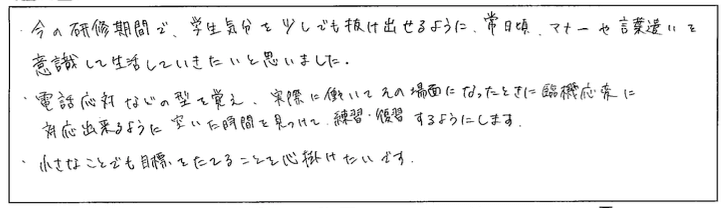 ・今の研修期間で、学生気分を少しでも抜け出せるように、常日頃、マナーや言葉遣いを
意識して生活していきたいと思いました。
・電話応対などの型を覚え、実際に働いてその場面になったときに臨機応変に
対応出来るように空いた時間を見つけて、練習・復習するようにします。
・小さなことでも目標をたてることを心掛けたいです。